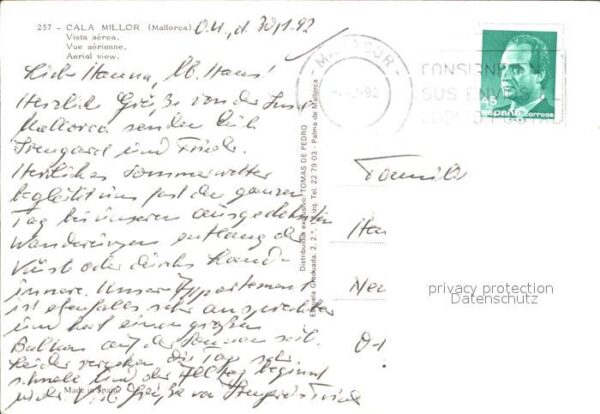 257 - CALA MILLOR (Mallorca)
Vista aérea.
Vue aérienne.
Aerial view.
d. 30/1.92
Liebe Hanna, lb. Hans!
Herzliche Grüße von der Insel
Mallorca senden Euch
Irmgard und Friedr.
Herrliches Sommerwetter
begleitet uns fast den ganzen
Tag bei unseren ausgedehnten
Wanderungen entlang der
Küste oder durchs Landes-
innere. Unser Appartement
ist ebenfalls sehr ansprechend
und hat einen großen
Balkon auf der Sonnenseite.
Leider vergehen die Tage sehr
schnell und der Alltag beginnt
wieder. Viele Grüße von Irmgard + Friedr
Made in Spain
Distribuidor exclusivo: TOMAS DE PEDRO
Escuela Graduada, 2, 2.º, Izq. Tel. 22 79 03 - Palma de Mallorca
MANACOR
92
CONSIGNE EN
SUS ENVIOS
CODIGO
45
españa correos
Familie
Han
Neu
privacy protection
Datenschutz